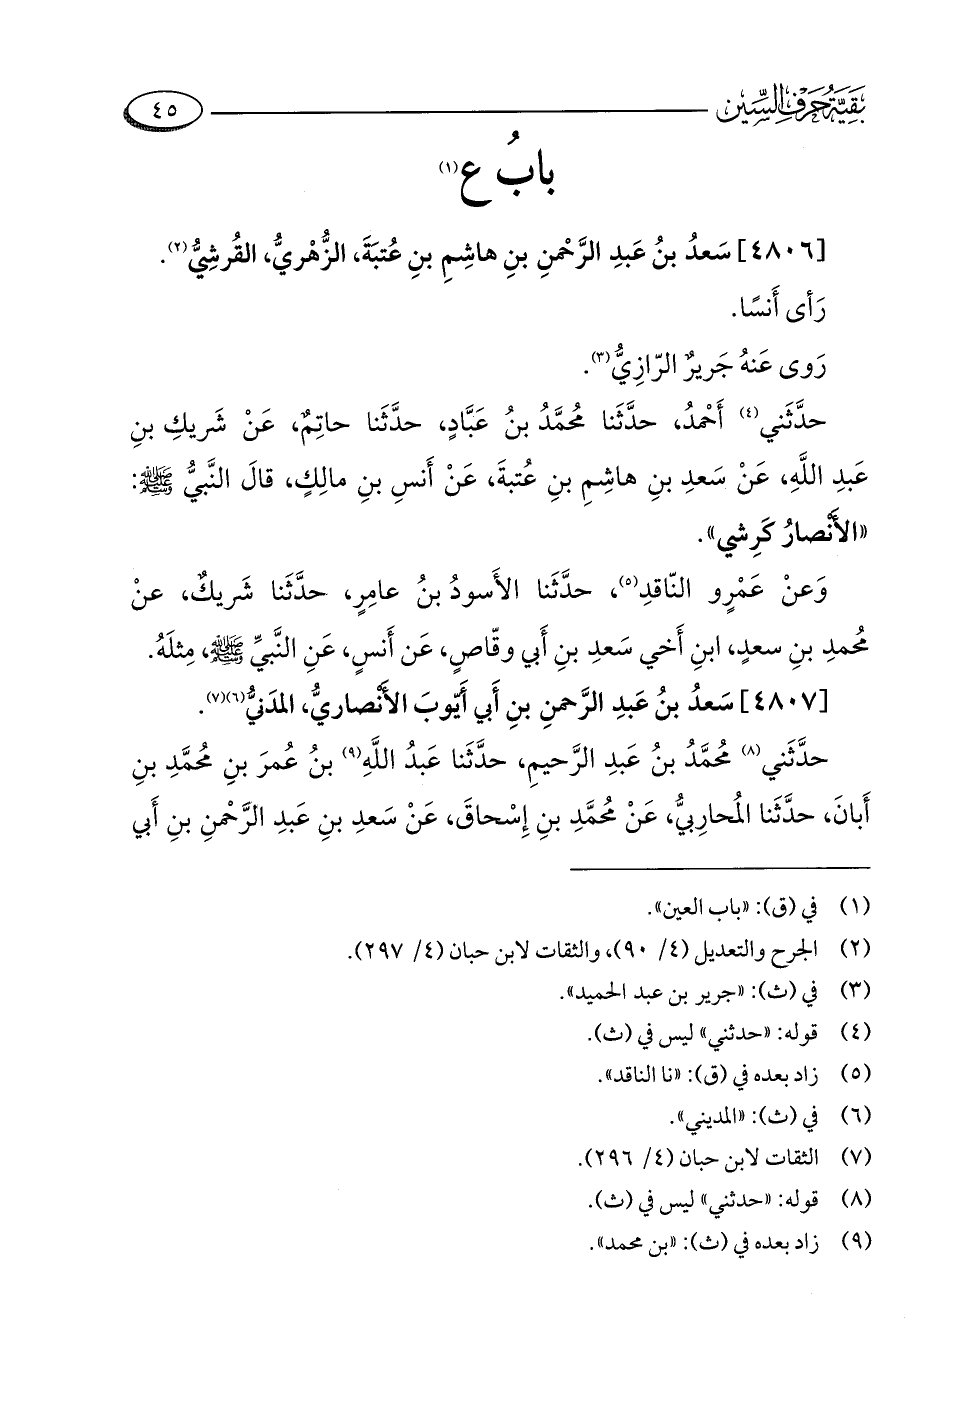 بَقِيَّةُ حَرْفِ السِّين
٤٥
بابُ ع(١)
[٤٨٠٦] سَعدُ بنُ عَبدِ الرَّحْمنِ بنِ هاشِمِ بنِ عُتبَةَ، الزُّهْريُّ، القُرشِيُّ(٢).
رَأى أَنسًا.
رَوى عَنهُ جَريرٌ الرّازِيُّ(٣).
حدَّثَني(٤) أَحْمدُ، حدَّثَنا مُحمَّدُ بنُ عَبَّادٍ، حدَّثَنا حاتِمٌ، عَنْ شَريكِ بنِ
عَبدِ اللَّهِ، عَنْ سَعدِ بنِ هاشِمِ بنِ عُتبةَ، عَنْ أَنسِ بنِ مالِكٍ، قالَ النَّبيُّ ﷺ:
«الأَنْصارُ كَرِشي».
وَعنْ عَمْرٍو النّاقدِ(٥)، حدَّثَنا الأَسودُ بنُ عامِرٍ، حدَّثَنا شَريكٌ، عنْ
مُحمدِ بنِ سعدٍ، ابنِ أَخي سَعدِ بنِ أَبي وقّاصٍ، عَن أَنسٍ، عَنِ النَّبيِّ ﷺ، مِثلَهُ.
[٤٨٠٧] سَعدُ بنُ عَبدِ الرَّحمنِ بنِ أَبي أَيّوبَ الأَنْصاريُّ، المدَنيُّ(٦)(٧).
حدَّثَني(٨) مُحمَّدُ بنُ عَبدِ الرَّحيمِ، حدَّثَنا عَبدُ اللَّهِ(٩) بنُ عُمرَ بنِ مُحمَّدِ بنِ
أَبانَ، حدَّثَنا المُحاربيُّ، عَنْ مُحمَّدِ بنِ إِسْحاقَ، عَنْ سَعدِ بنِ عَبدِ الرَّحْمنِ بنِ أَبي
(١) في (ق): «باب العين».
(٢) الجرح والتعديل (٤/ ٩٠)، والثقات لابن حبان (٤/ ٢٩٧).
(٣) في (ث): «جرير بن عبد الحميد».
(٤) قوله: «حدثني» ليس في (ث).
(٥) زاد بعده في (ق): «نا الناقد».
(٦) في (ث): «المديني».
(٧) الثقات لابن حبان (٤/ ٢٩٦).
(٨) قوله: «حدثني» ليس في (ث).
(٩) زاد بعده في (ث): «بن محمد».